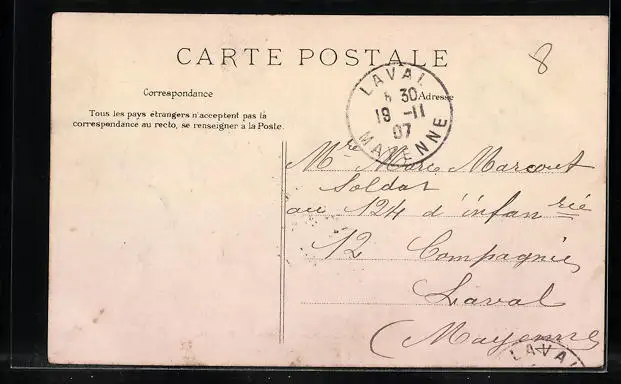 CARTE POSTALE
8
Correspondance
Adresse
Tous les pays étrangers n'acceptent pas la
correspondance au recto, se renseigner a la Poste.
LAVAL
8 30
19 -11
07
MAYENNE
Mre Marcouet
Soldat
au 124 d'infanrié
12 Compagnie
Laval
(Mayenne
LAVAL